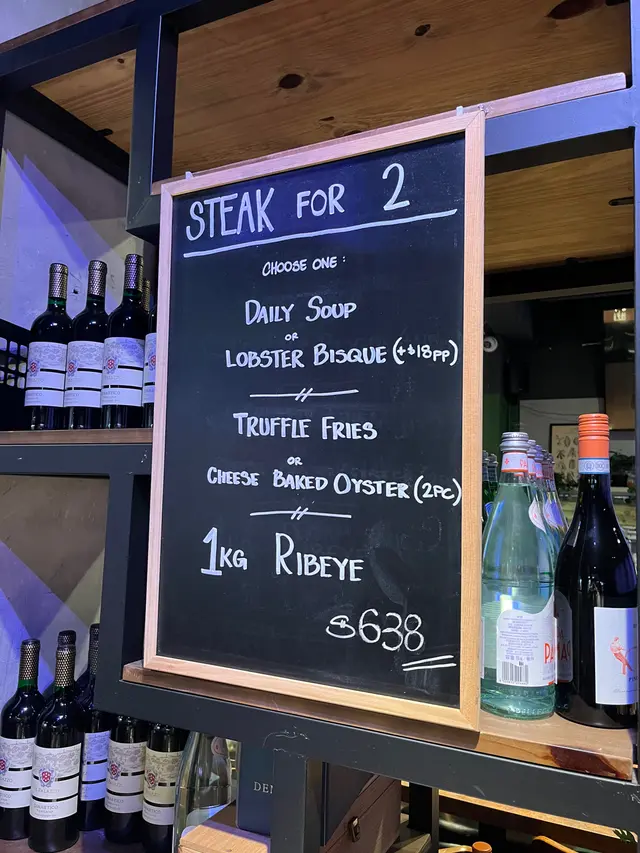 STEAK FOR 2
CHOOSE ONE:
DAILY SOUP
OR
LOBSTER BISQUE (+$18PP)
TRUFFLE FRIES
OR
CHEESE BAKED OYSTER (2PC)
1KG RIBEYE
$638